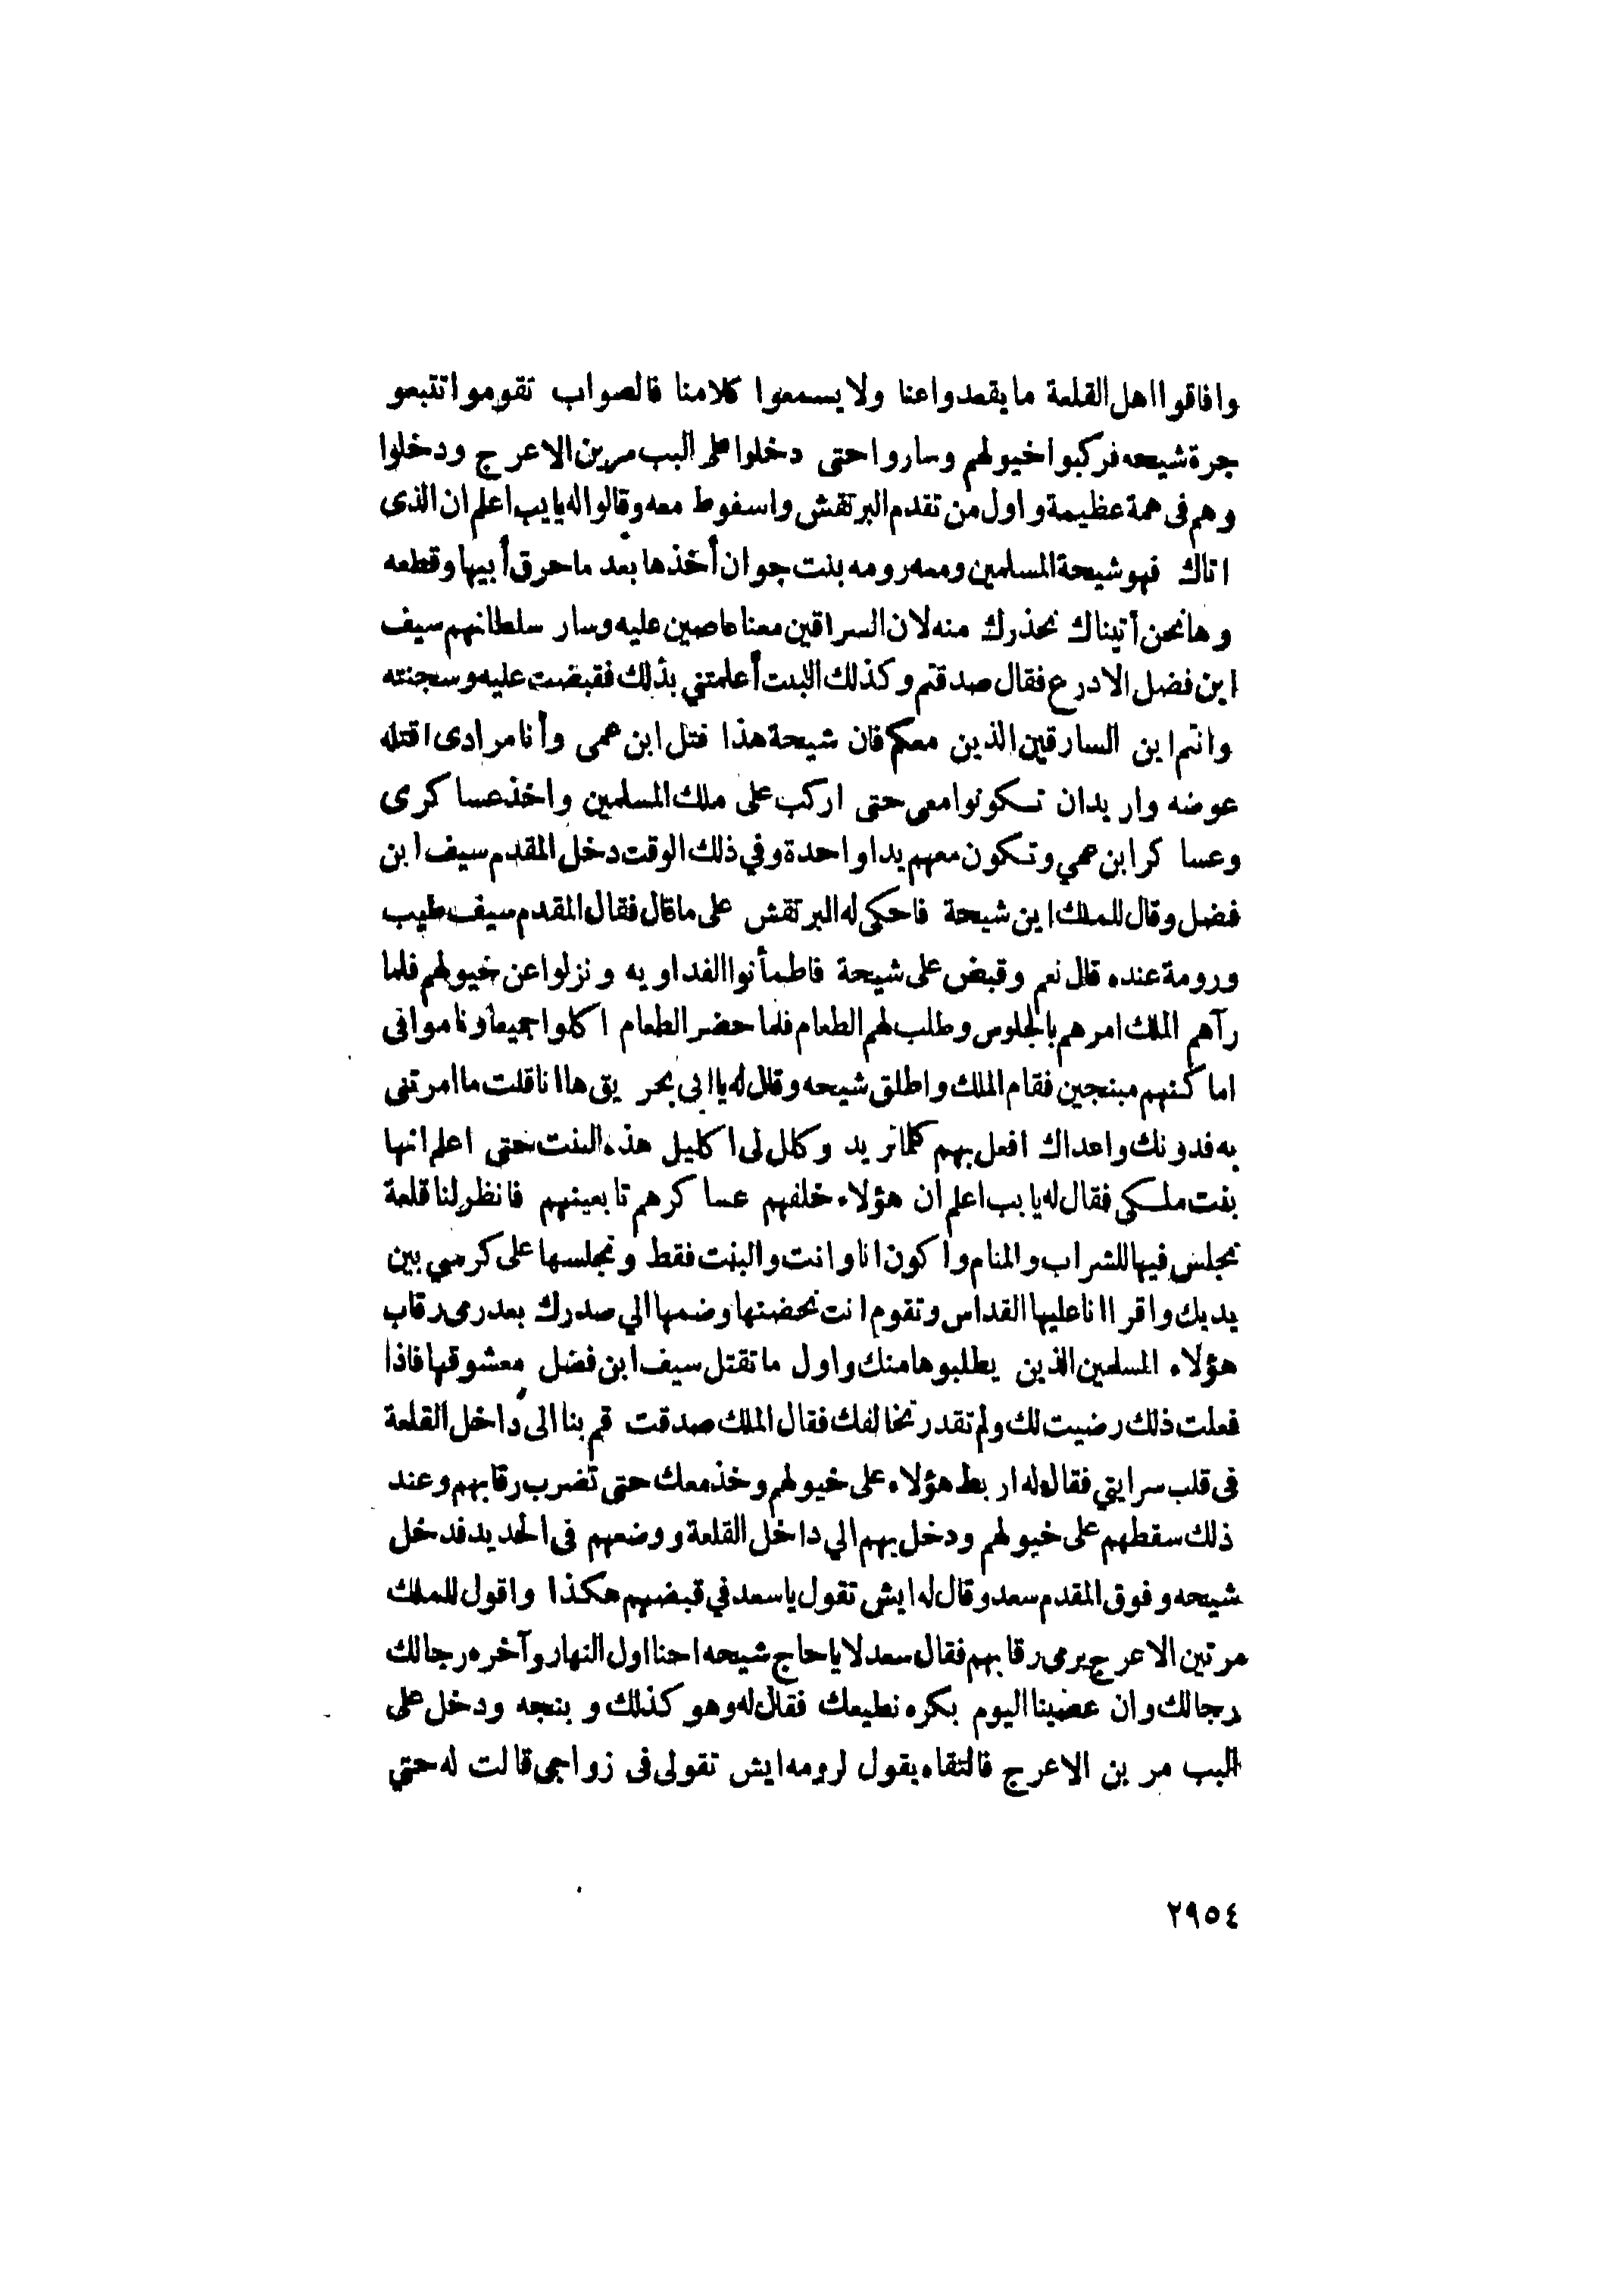 وافاقوا اهل القلعة ما يقعدوا عنا ولا يسمعوا كلامنا فالصواب تقوموا تتبعو
جرة شيحه فركبوا خيولهم وساروا حتى دخلوا على البب مرين الاعرج ودخلوا
وهم فى همة عظيمة واول من تقدم البرتقش واسفوط معه وقالوا له يا بب اعلم ان الذى
اتاك فهو شيحة المسلمين ومعه رومه بنت جوان أخذها بعد ما حرق أبيها وقطعه
وها نحن أتيناك نحذرك منه لان السراقين معنا عاصين عليه وسار سلطانهم سيف
ابن فضل الادرع فقال صدقتم وكذلك البنت أعلمتني بذلك فقبضت عليه وسجنته
وانتم اين السارقين الذين معكم فان شيحة هذا قتل ابن عمى وأنا مرادى اقتله
عوضه واريد ان تكونوا معى حتى اركب على ملك المسلمين واخذ عساكرى
وعساكر ابن عمي وتكون معهم يدا واحدة وفي ذلك الوقت دخل المقدم سيف ابن
فضل وقال للملك اين شيحة فاحكى له البرتقش على ما قال فقال المقدم سيف طيب
ورومة عنده قال نعم وقبض على شيحة فاطمأنوا الفداويه ونزلوا عن خيولهم فلما
رآهم الملك امرهم بالجلوس وطلب لهم الطعام فلما حضر الطعام اكلوا جميعا وناموا فى
اماكنهم مبنجين فقام الملك واطلق شيحه وقال له يا ابى بحر يق ها انا قلت ما امرتنى
به فدونك واعداك افعل بهم كلما تريد وكلل لى اكليل هذه البنت حتى اعلم انها
بقت ملكى فقال له يا بب اعلم ان هؤلاء خلفهم عساكرهم تابعينهم فانظر لنا قلعة
نجلس فيها للشراب والمنام واكون انا وانت والبنت فقط ونجلسها على كرسي بين
يديك واقرا انا عليها القداس وتقوم انت تحضنتها وضمها الي صدرك بعد رمى رقاب
هؤلاء المسلمين الذين يطلبوها منك واول ما تقتل سيف ابن فضل معشوقها فاذا
فعلت ذلك رضيت لك ولم تقدر تخالفك فقال الملك صدقت قم بنا الى داخل القلعة
فى قلب سرايتي فقال له اربط هؤلاء على خيولهم وخذ معك حتى تضرب رقابهم وعند
ذلك سقطهم على خيولهم ودخل بهم الي داخل القلعة ووضعهم فى الحديد فدخل
شيحه وفوق المقدم سعد وقال له ايش تقول يا سعد في قبضهم هكذا واقول للملك
مرتين الاعرج يرمى رقابهم فقال سعد لا يا حاج شيحه احنا اول النهار وآخره رجالك
رجالك وان عضينا اليوم بكره نطيعك فقال له وهو كذلك وبنجه ودخل على
البب مرين الاعرج فالتقاه يقول لرومه ايش تقولى فى زواجى قالت له حتي
٢٩٥٤